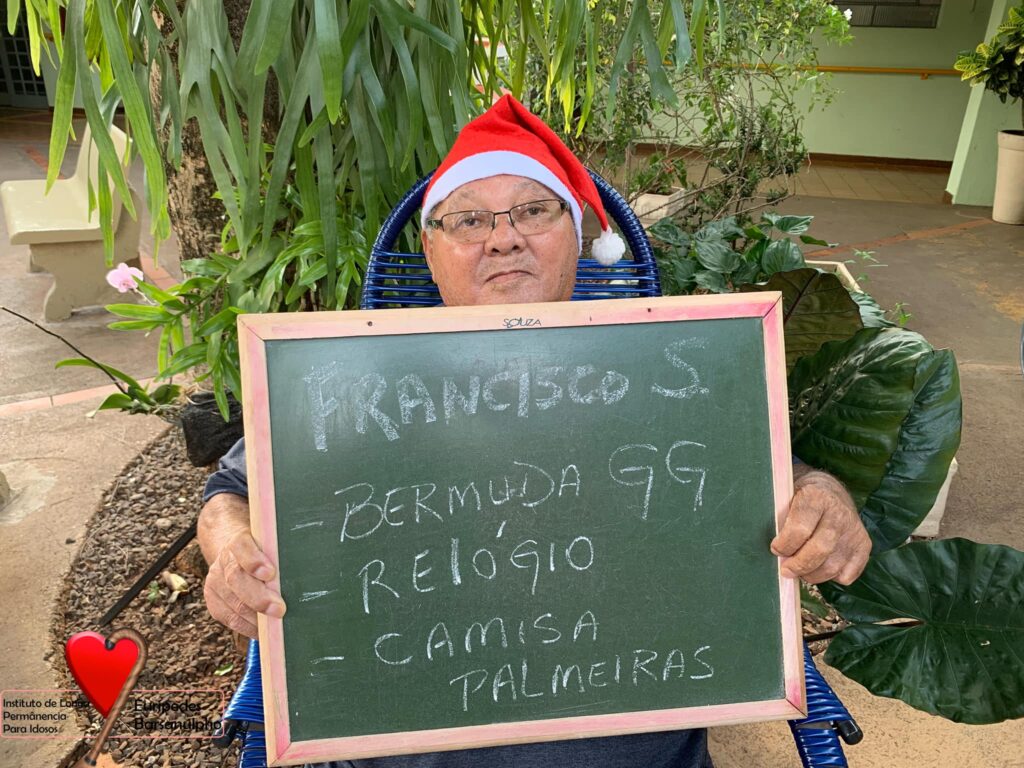 SOUZA
FRANCISCO S.
- BERMUDA GG
- RELÓGIO
- CAMISA
PALMEIRAS
Instituto de Longa
Permanência
Para Idosos
Eurípedes
Barsanulpho